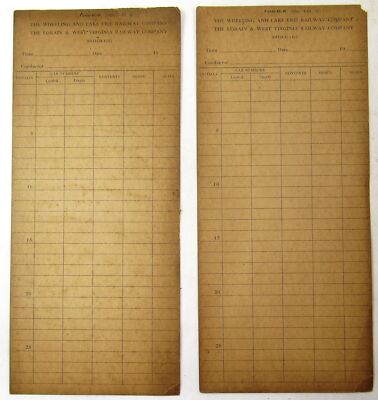 THE WHEELING AND LAKE ERIE RAILWAY COMPANY
THE LORAIN & WEST VIRGINIA RAILWAY COMPANY
Train Date 19
Conductor
INITIALS
CAR NUMBERS
Loaded
Empty
CONTENTS
5
10
15
20
25
THE WHEELING AND LAKE ERIE RAILWAY COMPANY
THE LORAIN & WEST VIRGINIA RAILWAY COMPANY
Train Date 19
Conductor
INITIALS
CAR NUMBERS
Loaded
Empty
CONTENTS
5
10
15
20
25